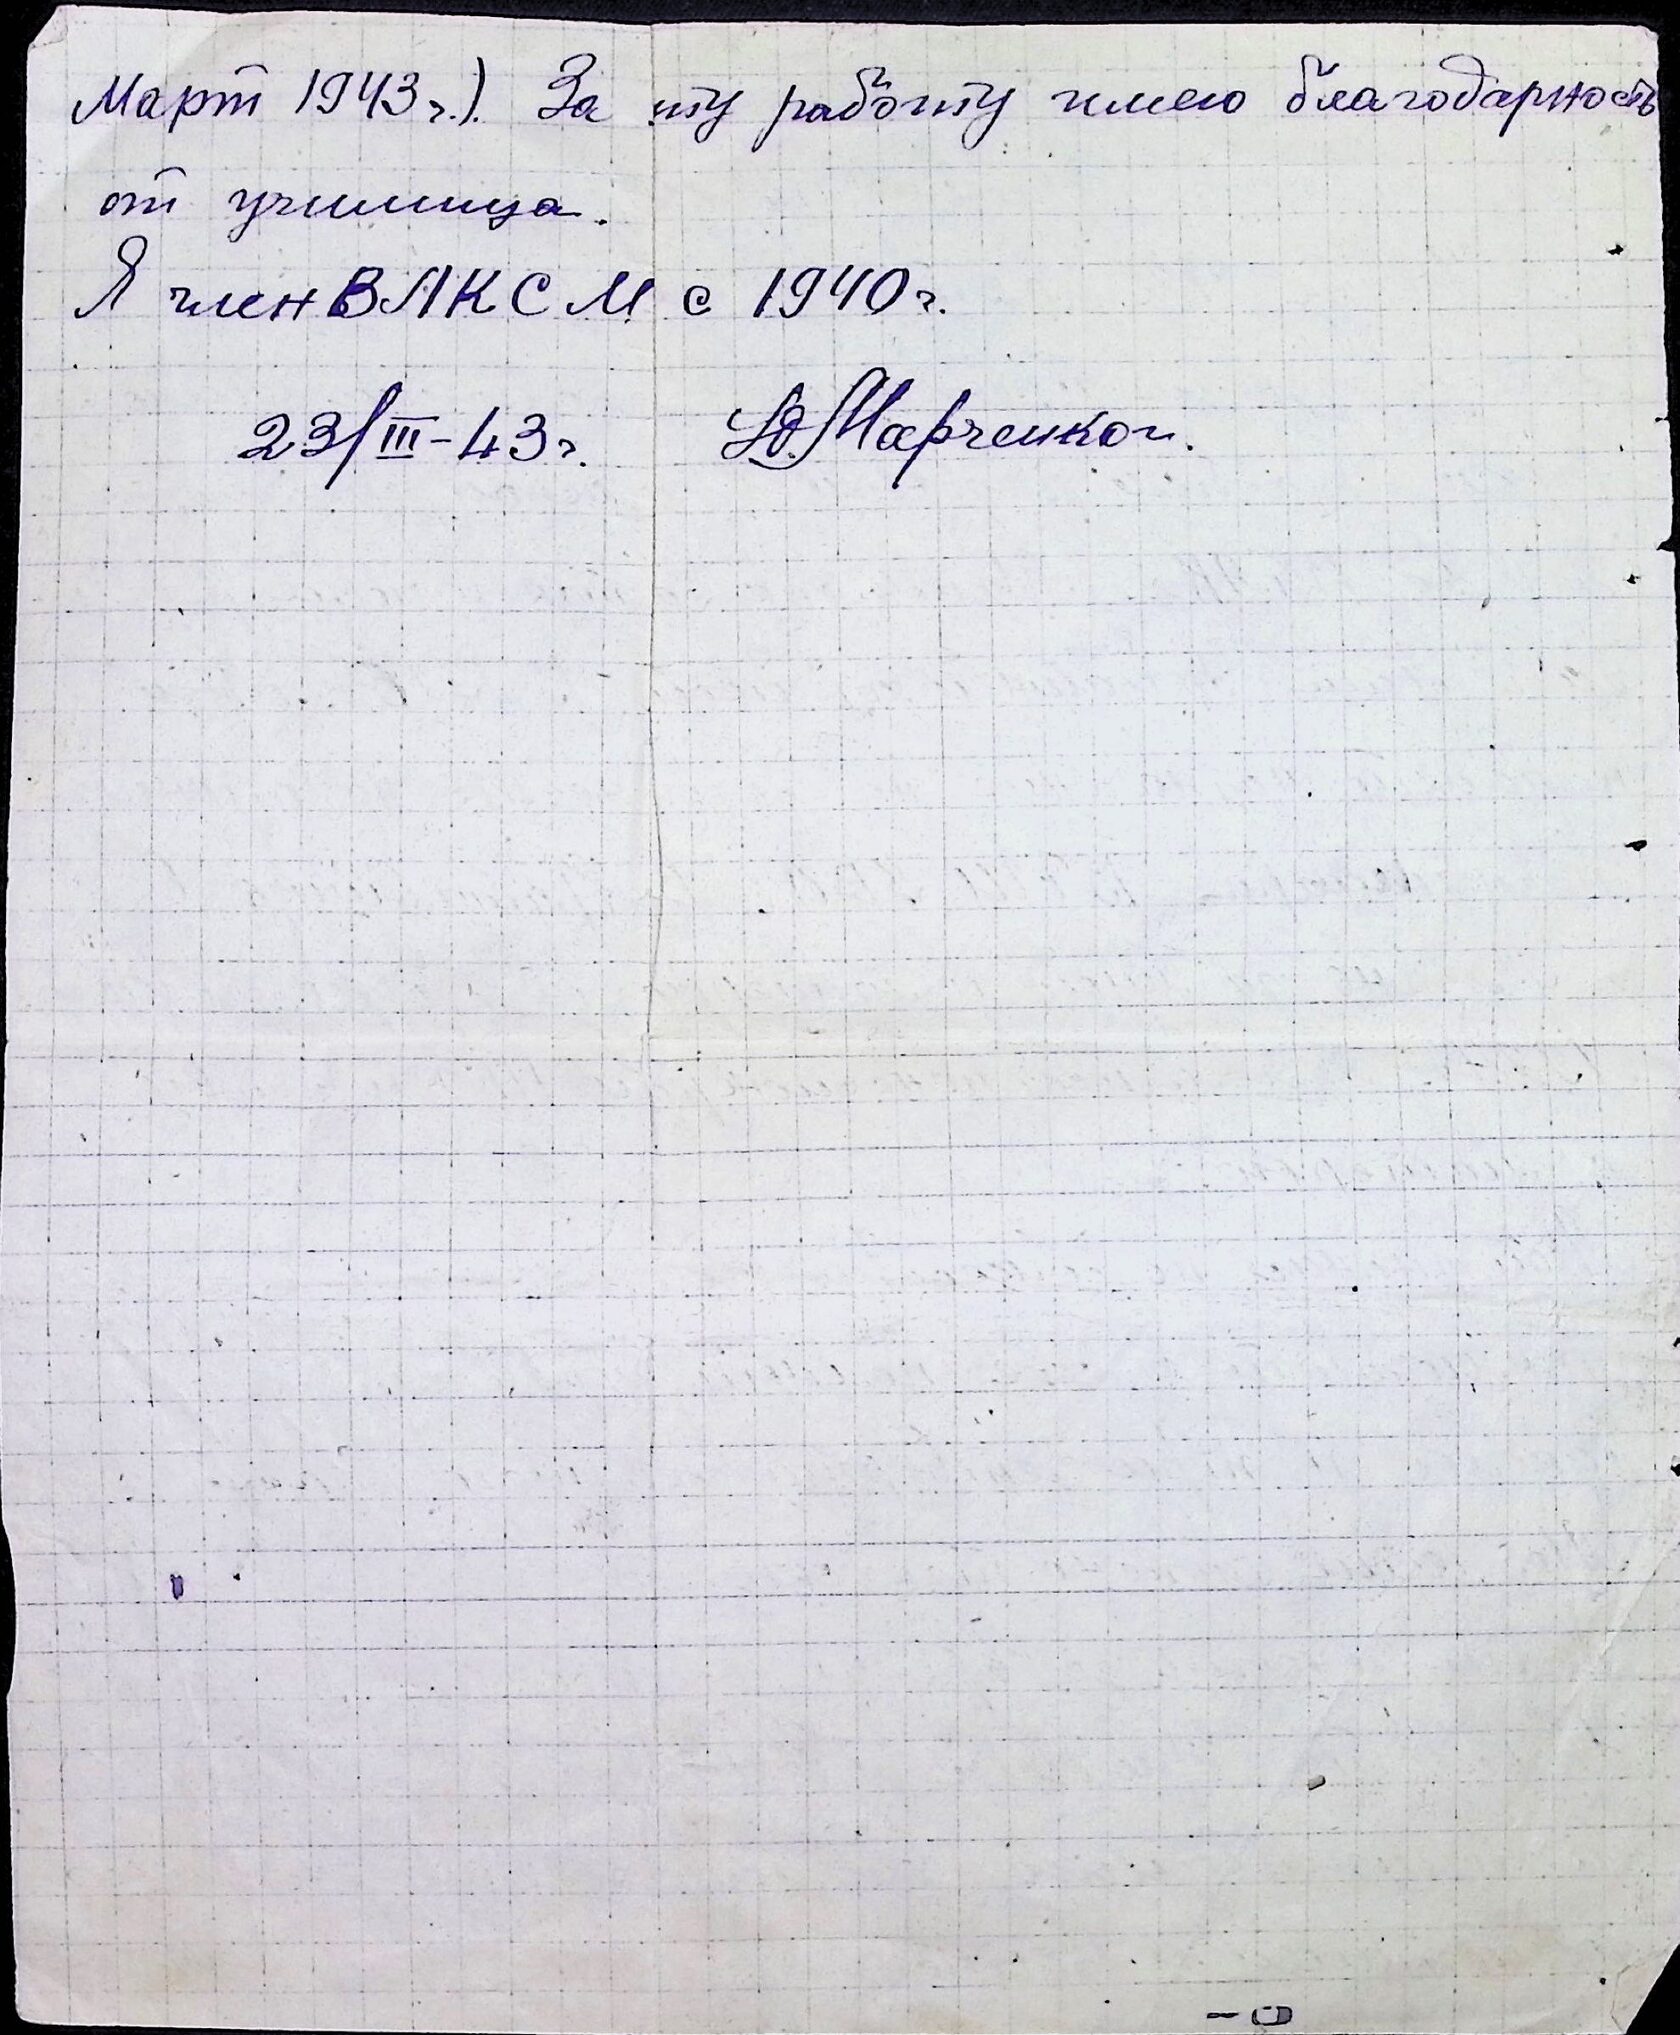 Март 1943 г.). За ту работу имею благодарность
от училища.
Я член ВЛКСМ с 1940 г.
23/III-43 г. Ю. Марченко